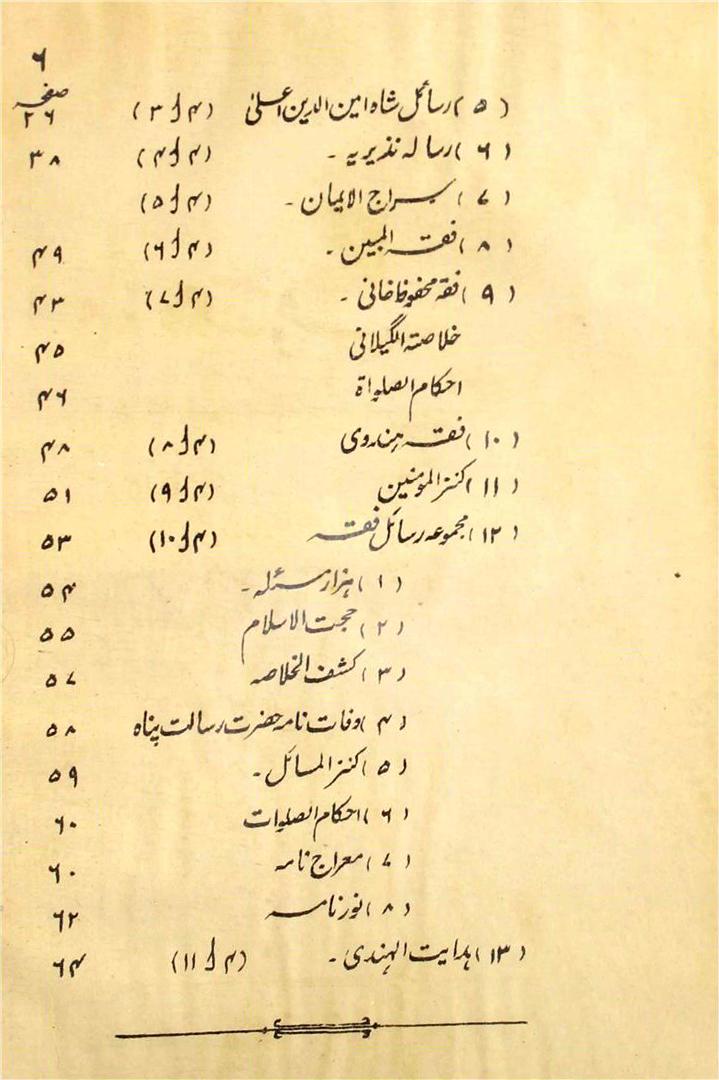 ۶
صفحہ
(۵) رسائل شاہ امین الدین اعلیٰ (۴ل۳) ۲۶
(۶) رسالہ نذیریہ۔ (۴ل۴) ۳۸
(۷) سراج الایمان۔ (۴ل۵)
(۸) فقہ المبین۔ (۴ل۶) ۴۹
(۹) فقہ محفوظ خانی۔ (۴ل۷) ۴۳
خلاصتہ الگیلانی ۴۵
احکام الصلواۃ ۴۶
(۱۰) فقہ ہندوی (۴ل۸) ۴۸
(۱۱) کنز المومنین (۴ل۹) ۵۱
(۱۲) مجموعہ رسائل فقہ (۴ل۱۰) ۵۳
(۱) ہزار مسئلہ۔ ۵۴
(۲) حجت الاسلام ۵۵
(۳) کشف الخلاصہ ۵۷
(۴) وفات نامہ حضرت رسالت پناہ ۵۸
(۵) کنز المسائل۔ ۵۹
(۶) احکام الصلوات ۶۰
(۷) معراج نامہ ۶۰
(۸) نور نامہ ۶۲
(۱۳) ہدایت الہندی۔ (۴ل۱۱) ۶۴